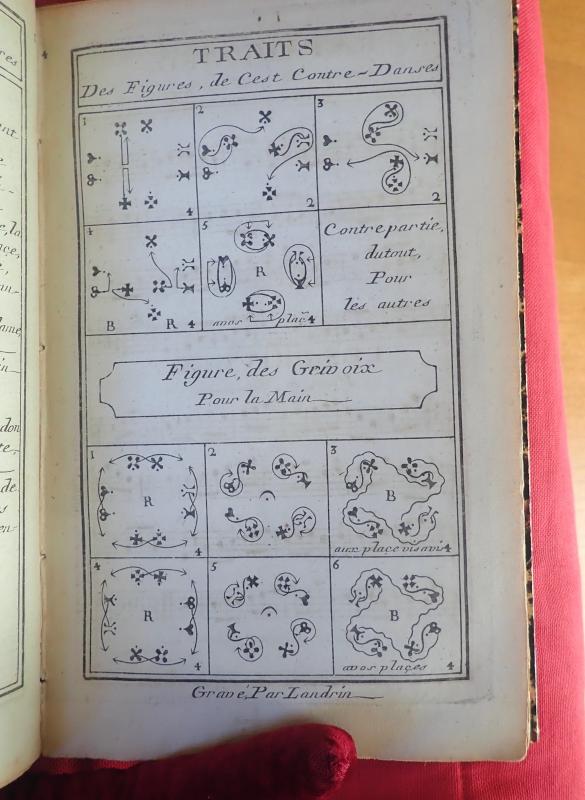 TRAITS
Des Figures, de Cest Contre-Danses
1
4
2
2
3
2
4
B
R
4
5
R
avos plaç. 4
Contrepartie,
dutout,
Pour
les autres
Figure, des Grivoix
Pour la Main
1
R
4
2
3
B
aux place visavis 4
4
R
4
5
6
B
avos places
4
Gravé, Par Landrin